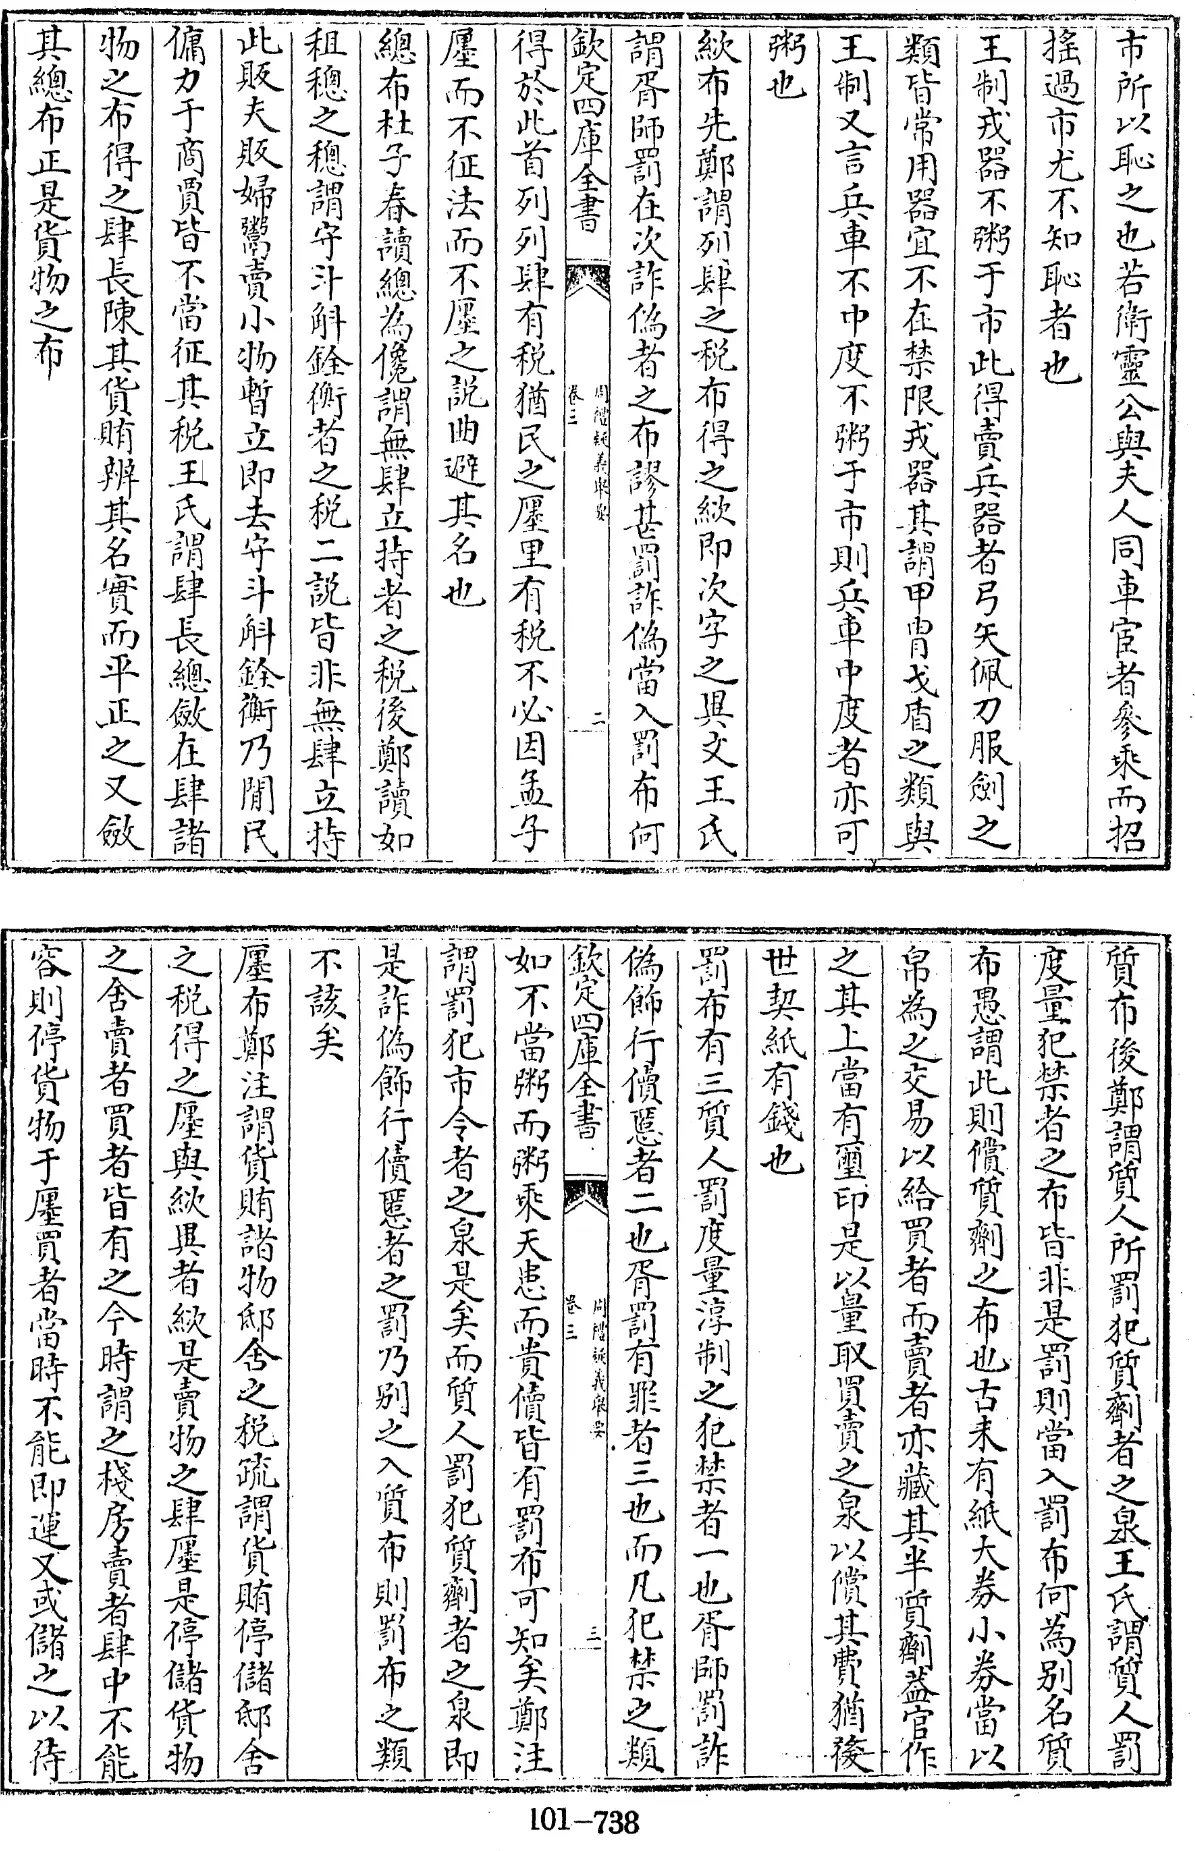 市所以恥之也若衛靈公與夫人同車宦者參乘而招
搖過市尤不知恥者也
王制戎器不粥于市此得賣兵器者弓矢佩刀服劍之
類皆常用器宜不在禁限戎器其謂甲胄戈盾之類與
王制又言兵車不中度不粥于市則兵車中度者亦可
粥也
絘布先鄭謂列肆之税布得之絘即次字之異文王氏
謂胥師罰在次詐偽者之布謬甚罰詐偽當入罰布何
欽定四庫全書
周禮疑義舉要
卷三
二
得於此首列列肆有税猶民之廛里有税不必因孟子
廛而不征法而不廛之説曲避其名也
總布杜子春讀總為儳謂無肆立持者之税後鄭讀如
租穗之穗謂守斗斛銓衡者之税二説皆非無肆立持
此販夫販婦鬻賣小物暫立即去守斗斛銓衡乃閒民
傭力于商賈皆不當征其税王氏謂肆長總斂在肆諸
物之布得之肆長陳其貨賄辨其名實而平正之又斂
其總布正是貨物之布
質布後鄭謂質人所罰犯質劑者之泉王氏謂質人罰
度量犯禁者之布皆非是罰則當入罰布何為别名質
布愚謂此則償質劑之布也古未有紙大券小券當以
帛為之交易以給買者而賣者亦藏其半質劑蓋官作
之其上當有璽印是以量取買賣之泉以償其費猶後
世契紙有錢也
罰布有三質人罰度量淳制之犯禁者一也胥師罰詐
偽飾行儥慝者二也胥罰有罪者三也而凡犯禁之類
欽定四庫全書
周禮疑義舉要
卷三
三
如不當粥而粥乘天患而貴儥皆有罰布可知矣鄭注
謂罰犯市令者之泉是矣而質人罰犯質劑者之泉即
是詐偽飾行儥慝者之罰乃别之入質布則罰布之類
不該矣
廛布鄭注謂貨賄諸物邸舍之税疏謂貨賄停儲邸舍
之税得之廛與絘異者絘是賣物之肆廛是停儲貨物
之舍賣者買者皆有之今時謂之棧房賣者肆中不能
容則停貨物于廛買者當時不能即運又或儲之以待
101-738